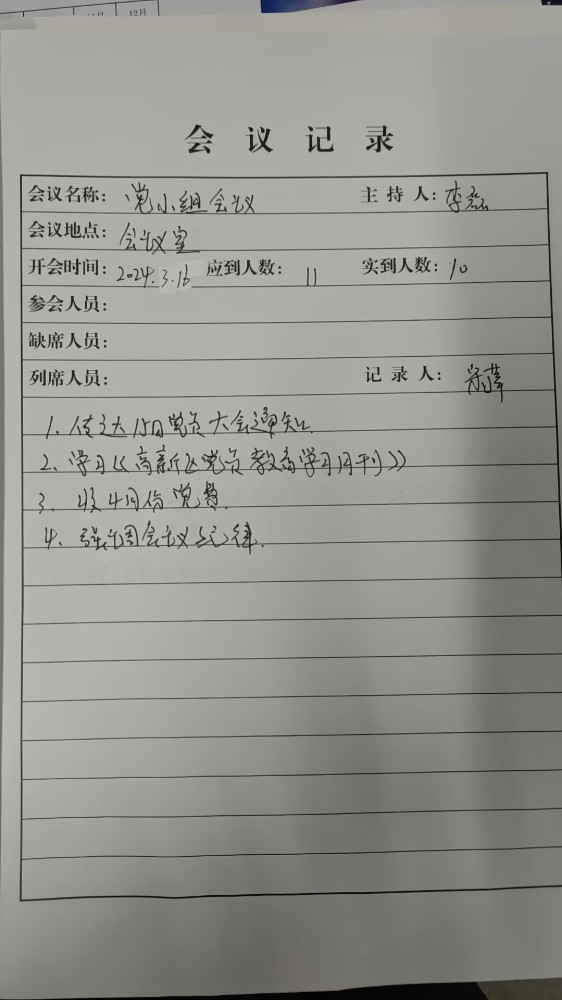 12月
会议记录
会议名称： 党小组会议 主持人：李磊
会议地点： 会议室
开会时间：2024.3.16 应到人数： 11 实到人数：10
参会人员：
缺席人员：
列席人员： 记录人：
1. 传达15日党员大会通知.
2. 学习《高新区党员教育学习月刊》
3. 收4月份党费.
4. 强调会议纪律.